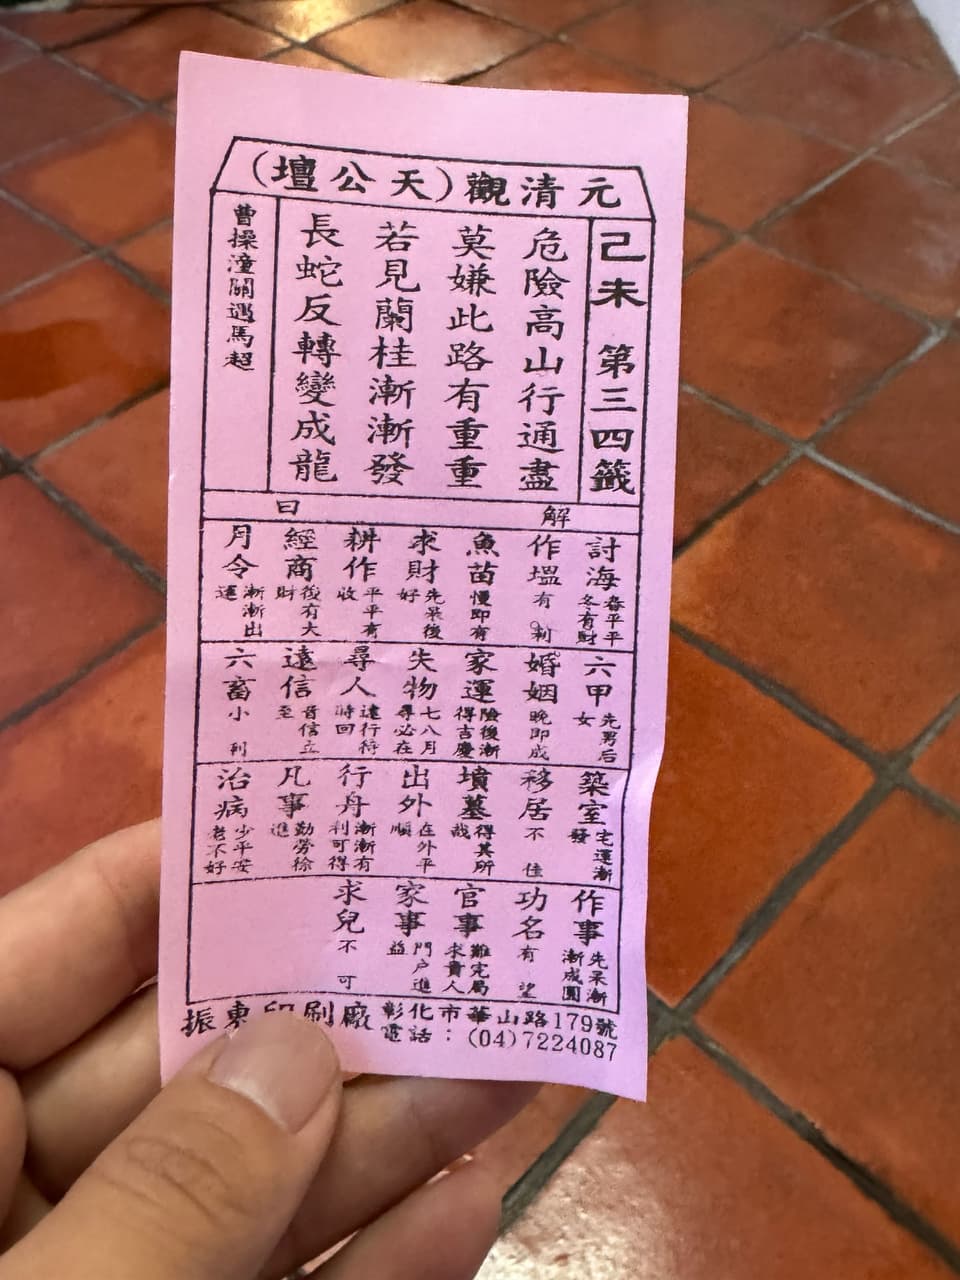 元清觀(天公壇)
己未 第三四籤
危險高山行通盡
莫嫌此路有重重
若見蘭桂漸漸發
長蛇反轉變成龍
曹操潼關遇馬超
解曰
討海 春平平冬有財
作塭 有利
魚苗 慢即有
求財 先呆後好
耕作 平平有收
經商 後有大財
月令 漸漸出運
六甲 先男后女
婚姻 晚即成
家運 險後漸得吉慶
失物 七八月尋必在
尋人 遠行待時回
遠信 音信立至
六畜 小利
築室 宅運漸發
移居 不佳
墳墓 得其所哉
出外 在外平順
行舟 漸漸有利可得
凡事 勤勞徐進
治病 少平安老不好
作事 先呆漸漸成圓
功名 有望
官事 難完局求貴人
家事 門戶進益
求兒 不可
振東印刷廠 彰化市華山路179號
電話：(04)7224087